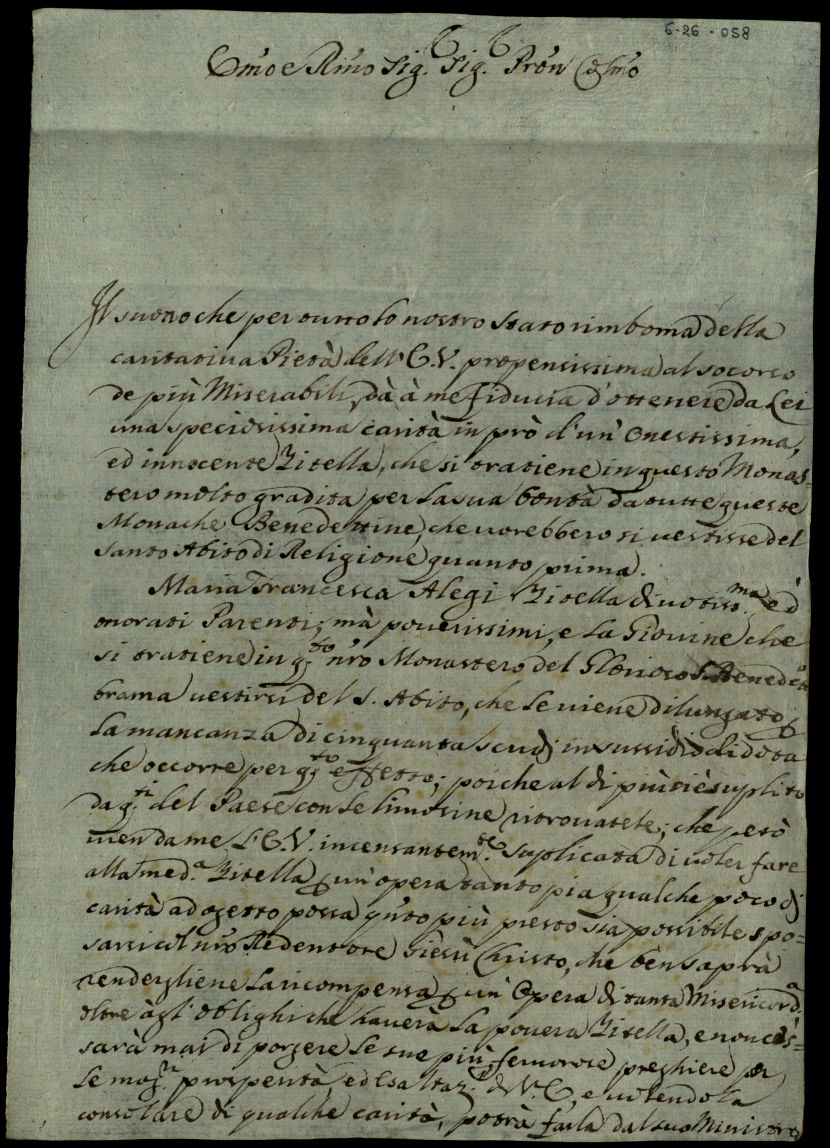 6-26-058
Em̃o e Rm̃o Sig.e Sig.e Pron̄ Col̃mo
Il suono che per tutto lo nostro Stato rimboma della
caritativa Pietà dell' E.V. propensissima al socorso
de più Miserabili, dà à me fiducia d'ottenere da Lei
una speciosissima carità in prò d'un' onestissima,
ed innocente Zitella, che si tratiene in questo Monas=
tero molto gradita per la sua bontà da tutte queste
Monache Benedettine, che vorebbero si vestisse del
Santo Abito di Religione quanto prima.
Maria Francesca Alegi Zitella di votiss.ma ed
onorati Parenti, mà poverissimi, e la Giovine che
si tratiene in q.to nr̃o Monastero del Glorioso S. Bened.to
brama vestirsi del S. Abito, che le viene dilungato p
la mancanza di cinquanta scudj in sussidio di dota
che occorre per q.to effetto; poiche al di più si è suplito
da q.ti del Paese con le limosine ritrovatele; che però
vien da me l'E.V. incessantem.te suplicata di voler fare
alla med.a Zitella p un' opera tanto pia qualche poco dj
carità ad ogetto possa q̃nto più presto sia possibile spo=
sarsi col nr̃o Redentore Giesù Christo, che ben saprà
rendergliene la ricompensa p un' Opera di tanta Misericord.a
oltre àgl' oblighi che haverà la povera Zitella, e non ces=
sarà mai di porgere le sue più fervorose preghiere per
le magg.ri prosperità, ed Esaltaz.e di V.E., e volendola
consolare di qualche carità, potrà farla dal suo Ministro